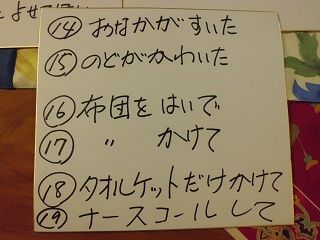 よせてほしい
⑭ おなかがすいた
⑮ のどがかわいた
⑯ 布団をはいで
⑰ 〃 かけて
⑱ タオルケットだけかけて
⑲ ナースコールして